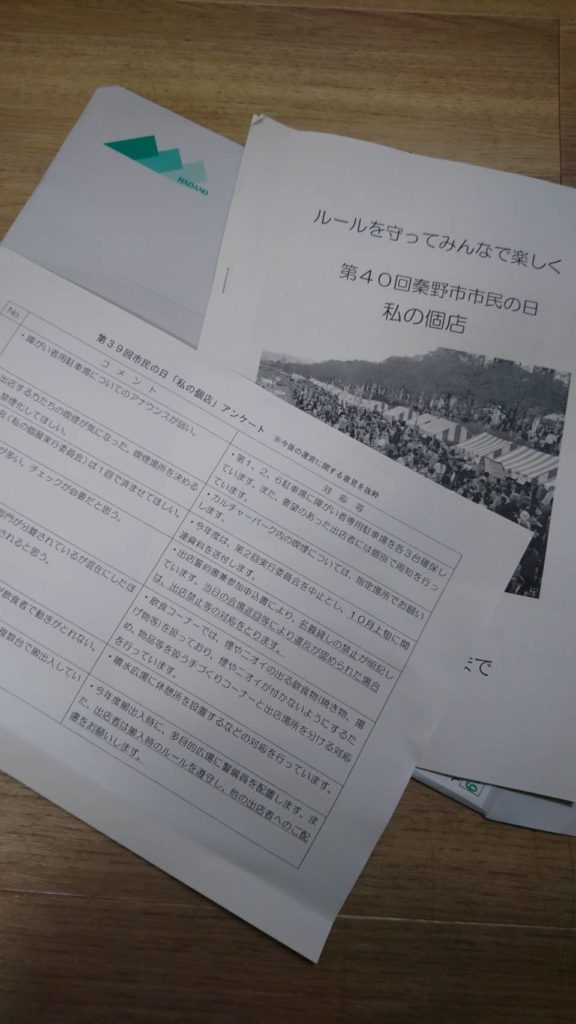 HADANO
ルールを守ってみんなで楽しく
第40回秦野市市民の日
私の個店
まで
第39回市民の日「私の個店」アンケート
※今後の運営に関する意見を抜粋
No
コメント
対応等
・障がい者用駐車場についてのアナウンスが弱い。
・第1、2、6駐車場に障がい者専用駐車場を各3台確保し
ています。また、要望のあった出店者には個別で周知を行っ
ています。
出店する方たちの喫煙が気になった。喫煙場所を決める
禁煙化してほしい。
・カルチャーパーク内の喫煙については、指定場所でお願い
します。
会(私の個展実行委員会)は1回で済ませてほしい。
・今年度は、第2回実行委員会を中止とし、10月上旬に関
連資料を送付します。
が多い。チェックが必要だと思う。
・出店誓約書兼参加申込書により、名義貸しの禁止が明記し
ています。当日の会場巡回等により違反が認められた場合
は、出店禁止等の対応をとります。
部門が分離されているが混在にしたほ
されると思う。
・飲食コーナーでは、煙やニオイの出る飲食物(焼き物、揚
げ物等)を扱っており、煙やニオイが付かないようにするた
め、物品等を扱う手づくりコーナーと出店場所を分ける対応
を行っています。
が飲食者で動きがとれない。
・噴水広場に休憩所を設置するなどの対応を行っています。
複数台で搬出入してい
・今年度搬出入時に、多目的広場に警備員を配置します。ま
た、出店者は搬入時のルールを遵守し、他の出店者へのご配
慮をお願いします。